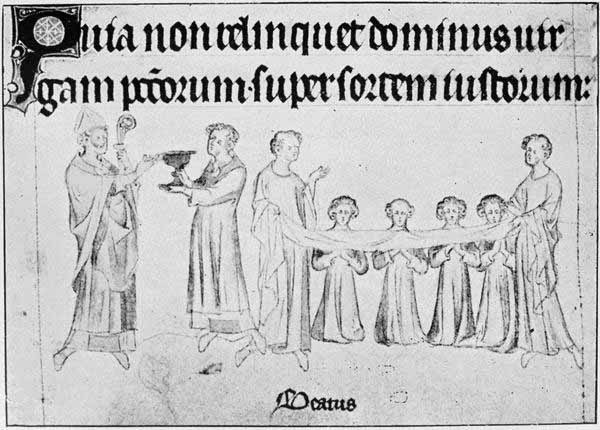 Quia non relinquet dominus uir
gam pc̃torum·super sortem iustorum:
Beatus